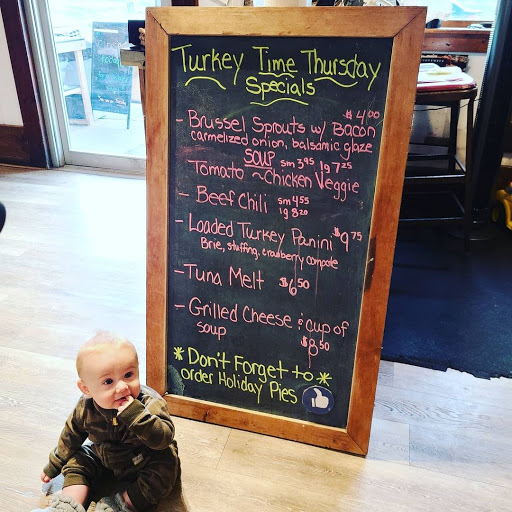 Turkey Time Thursday
Specials
$4.00
- Brussel Sprouts w/ Bacon
carmelized onion, balsamic glaze
SOUP sm 3.95 lg 7.25
Tomato ~ Chicken Veggie
- Beef Chili sm 4.55
lg 8.20
- Loaded Turkey Panini $9.75
Brie, stuffing, cranberry compote
- Tuna Melt $6.50
- Grilled Cheese & cup of
soup $8.50
* Don't Forget to *
order Holiday Pies